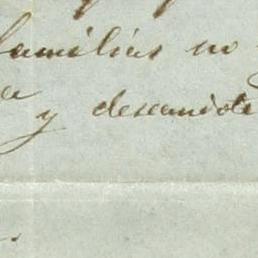 familias no
y deseandole